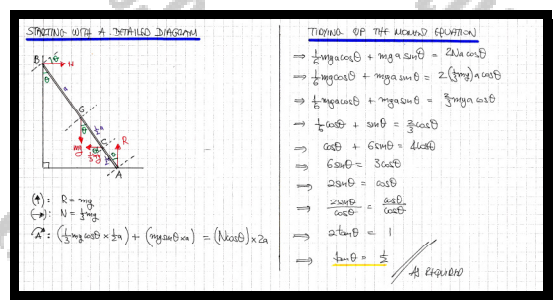 STARTING WITH A DETAILED DIAGRAM
B
θ
N
θ
a
G
θ
½a
mg
⅓mg
C
θ
½a
R
θ
A
(↑): R = mg
(→): N = ⅓mg
A: (⅓mg cosθ × ½a) + (mg sinθ × a) = (N cosθ) × 2a
TIDYING UP THE MOMENT EQUATION
⇒ ⅙mga cosθ + mga sinθ = 2Na cosθ
⇒ ⅙mga cosθ + mga sinθ = 2(⅓mg)a cosθ
⇒ ⅙mga cosθ + mga sinθ = ⅔mga cosθ
⇒ ⅙cosθ + sinθ = ⅔cosθ
⇒ cosθ + 6sinθ = 4cosθ
⇒ 6sinθ = 3cosθ
⇒ 2sinθ = cosθ
⇒ 2sinθ/cosθ = cosθ/cosθ
⇒ 2tanθ = 1
⇒ tanθ = ½
AS REQUIRED